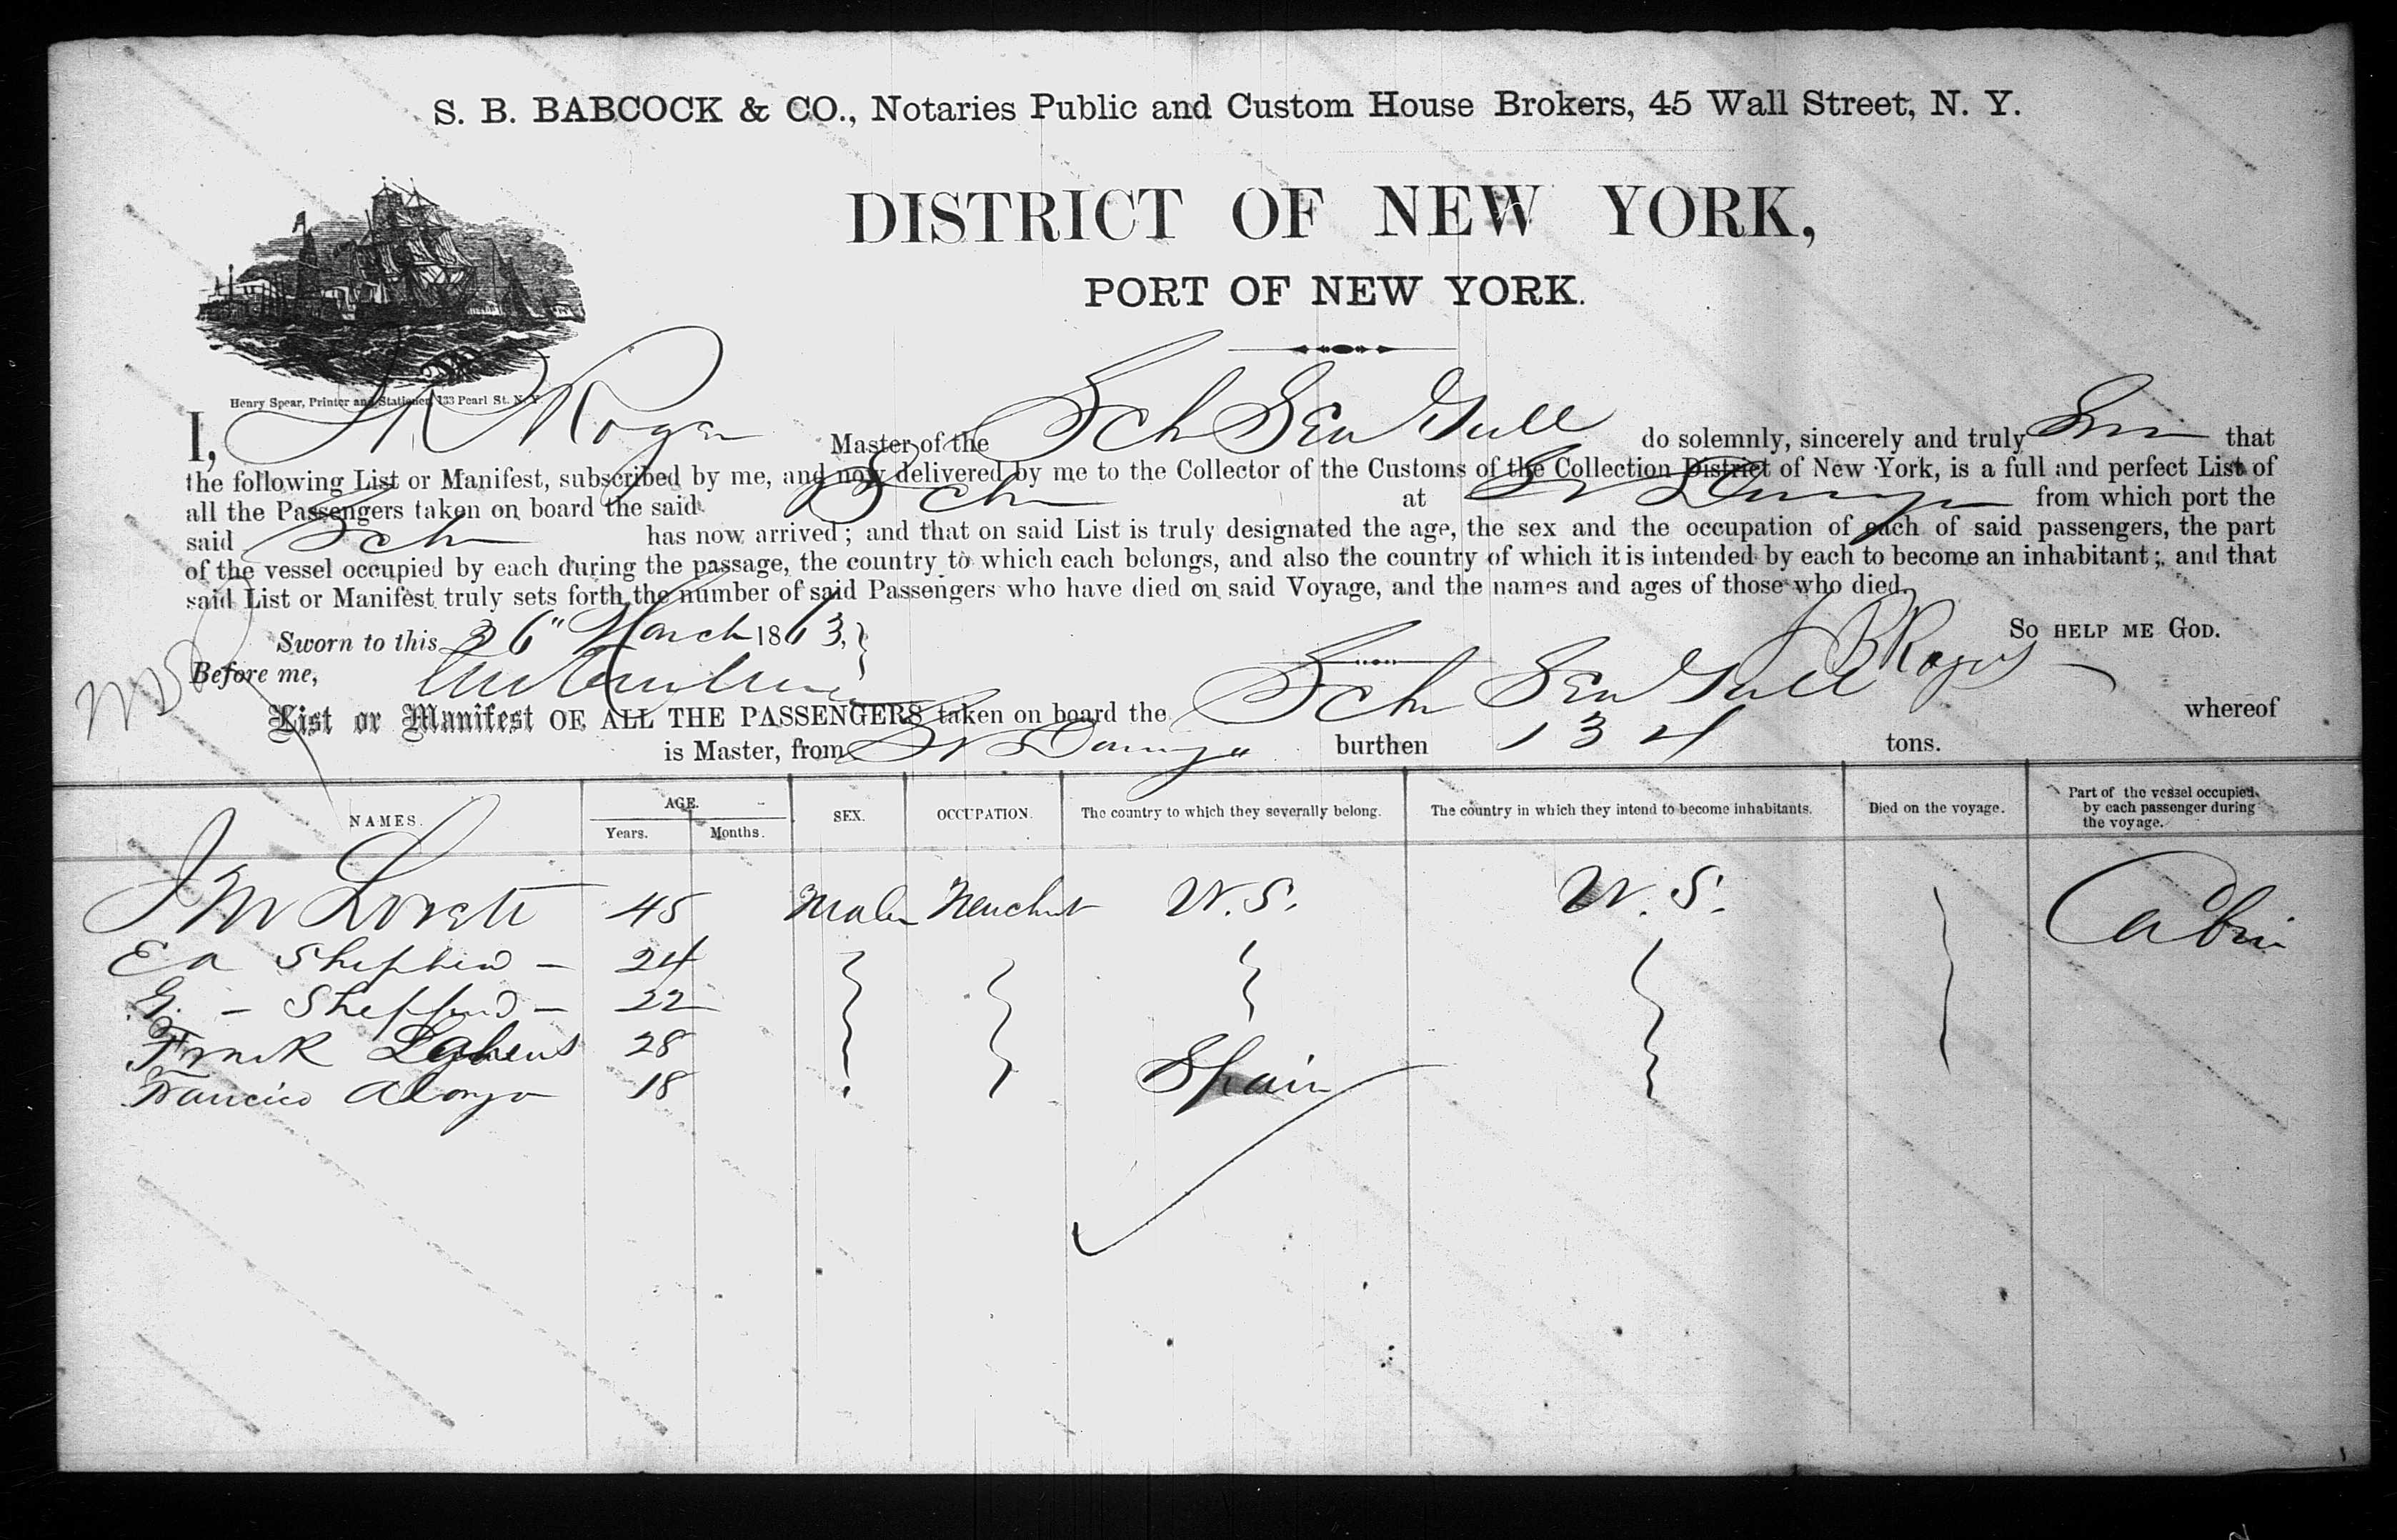 S. B. BABCOCK & CO., Notaries Public and Custom House Brokers, 45 Wall Street, N. Y.
DISTRICT OF NEW YORK,
PORT OF NEW YORK.
Henry Spear, Printer and Stationer, 133 Pearl St. N. Y.
I, Master of the Sch Sea Gull do solemnly, sincerely and truly that
the following List or Manifest, subscribed by me, and now delivered by me to the Collector of the Customs of the Collection District of New York, is a full and perfect List of
all the Passengers taken on board the said Sch at St Domingo from which port the
said Sch has now arrived; and that on said List is truly designated the age, the sex and the occupation of each of said passengers, the part
of the vessel occupied by each during the passage, the country to which each belongs, and also the country of which it is intended by each to become an inhabitant; and that
said List or Manifest truly sets forth the number of said Passengers who have died on said Voyage, and the names and ages of those who died.
Sworn to this 26" March 1863, SO HELP ME GOD.
Before me,
List or Manifest OF ALL THE PASSENGERS taken on board the Sch Sea Gull whereof
is Master, from St Domingo burthen 134 tons.
NAMES. AGE. Years. Months. SEX. OCCUPATION. The country to which they severally belong. The country in which they intend to become inhabitants. Died on the voyage. Part of the vessel occupied by each passenger during the voyage.
J M Lovett 45 Male Merchant U. S. U. S. Cabin
E a 24
G. 22
Frank 28
Francisco Alonzo 18 Spain